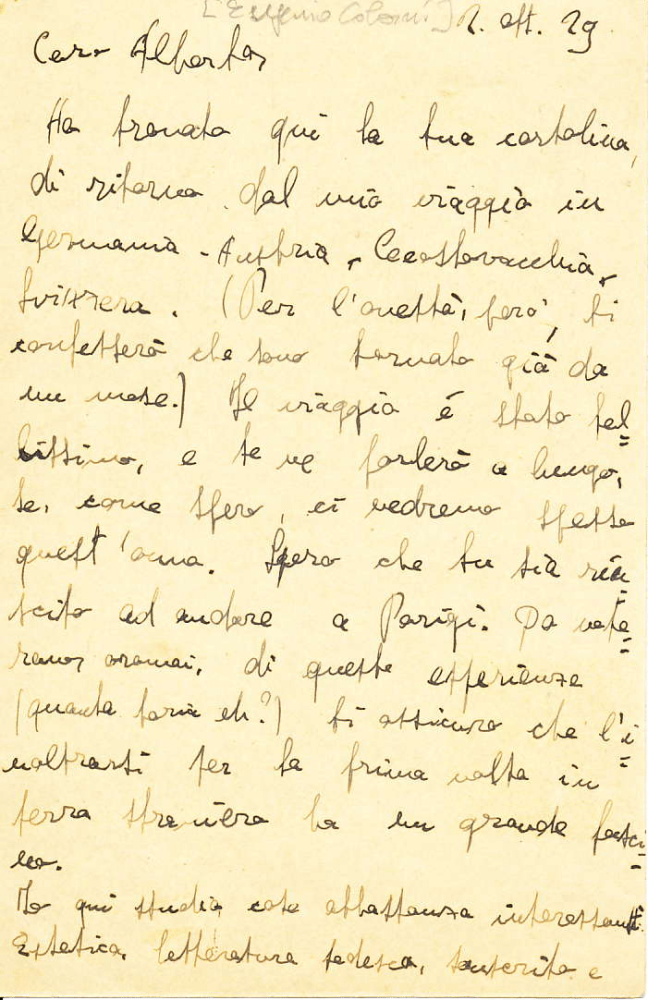 [Eugenio Colorni] 2. ott. 29
Caro Alberto,
Ho trovato qui la tua cartolina,
di ritorno dal mio viaggio in
Germania - Austria - Cecoslovacchia -
Svizzera. (Per l'onestà, però, ti
confesserò che sono tornato già da
un mese.) Il viaggio è stato bel=
lissimo, e te ne parlerò a lungo,
se, come spero, ci vedremo spesso
quest'anno. Spero che tu sia riu=
scito ad andare a Parigi. Da vete=
rano, oramai, di queste esperienze
(quanta boria eh?) ti assicuro che l'i=
noltrarsi per la prima volta in
terra straniera ha un grande fasci=
no.
Io qui studio cose abbastanza interessanti:
Estetica, letteratura tedesca, sanscrito e